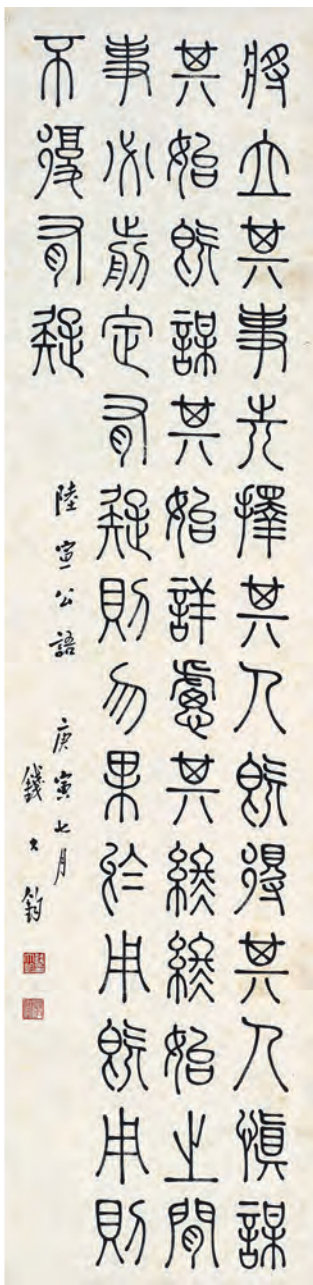 將立其事先擇其人既得其人慎謀
其始既謀其始詳慮其終終始之間
事必前定有疑則勿果於用既用則
不復有疑
陸宣公語 庚寅七月
錢大鈞